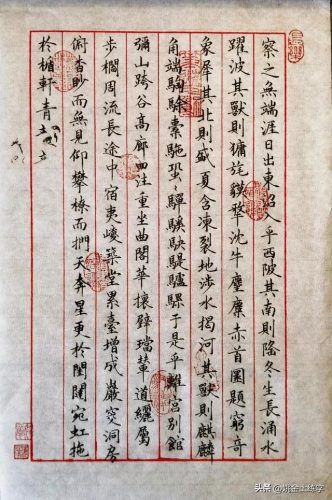 察之無端涯日出東沼入乎西陂其南則隆冬生長涌水
躍波其獸則㺎旄貘犛沈牛麈麋赤首圜題窮奇
象犀其北則盛夏含凍裂地涉水揭河其獸則麒麟
角端騊駼橐駞蛩〻驒騱駃騠驢騾于是乎離宮別館
彌山跨谷高廊四注重坐曲閣華榱璧璫輦道纚屬
步櫩周流長途中宿夷嵕築堂累臺增成巖窔洞房
俯杳眇而無見仰攀橑而捫天奔星更於閨闥宛虹拖
於楯軒青
头条 @姚金土练字